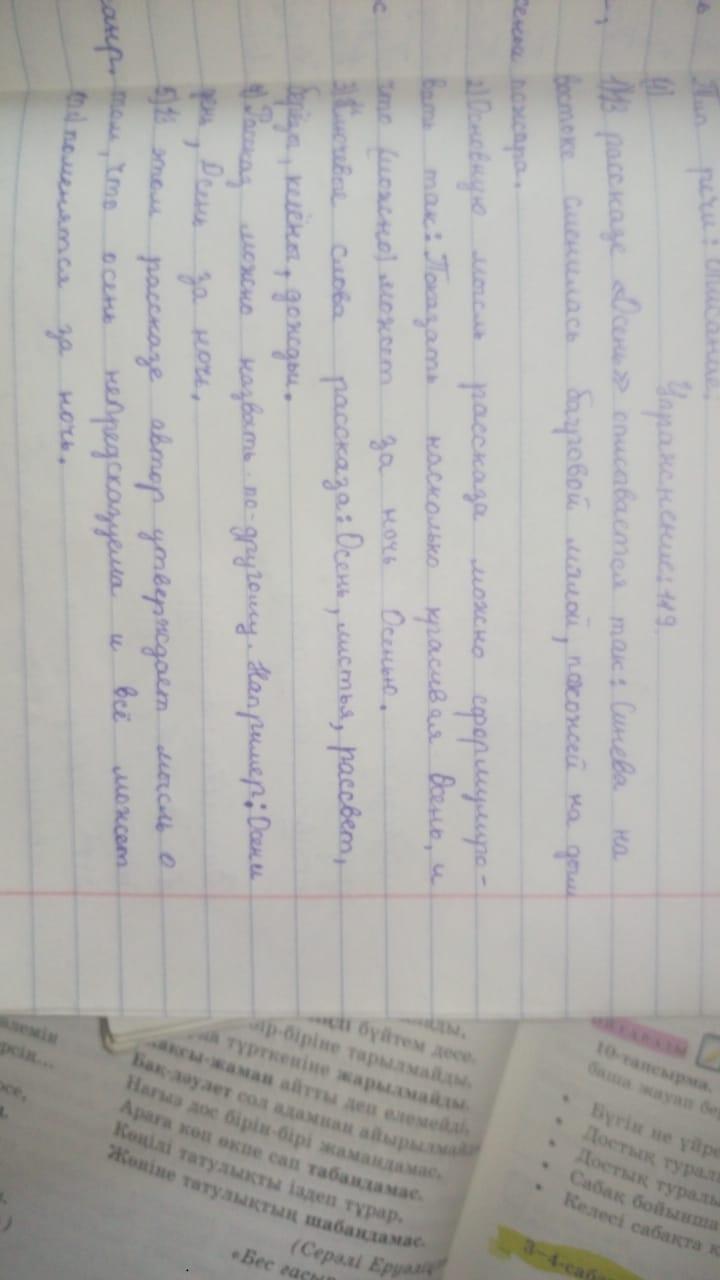 Тип речи: Описание.
Упражнение: 119
1) В рассказе «Осень» описывается так: Синева на
востоке сменилась багровой мглой, похожей на дым
пожара.
2) Основную мысль рассказа можно сформулиро-
вать так: Показать насколько красивая Осень, и
что (можно) может за ночь Осенью.
3) Ключевые слова рассказа: Осень, листья, рассвет,
клёны, дожди.
4) Рассказ можно назвать по-другому. Например: Осени
день, День за ночь.
5) В этом рассказе автор утверждает мысль о
том, что осень непредсказуема и всё может
поменятся за ночь.
бүйтем десе.
бір-біріне тарылмайды,
түрткеніне жарылмайды.
Жақсы-жаман айтты деп елемейді,
Бақ-дәулет сол адамнан айырылмайды
Нағыз дос бірін-бірі жамандамас,
Араға көп өкпе сап табандамас.
Көңілі татулықты іздеп тұрар,
Жөніне татулықтың шабандамас.
(Серәлі
«Бес ғасыр
10-тапсырма.
баша жауап бе
• Бүгін не үйре
• Достық турал
• Достық туралы
• Сабақ бойынша
• Келесі сабақта
3–4-саба